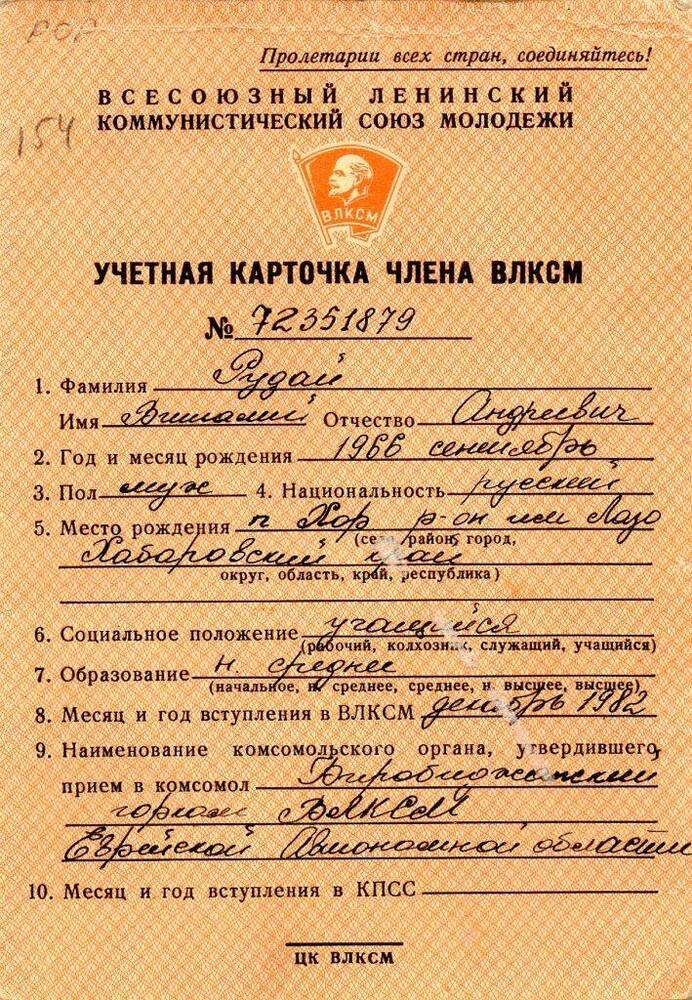 154
Пролетарии всех стран, соединяйтесь!
ВСЕСОЮЗНЫЙ ЛЕНИНСКИЙ
КОММУНИСТИЧЕСКИЙ СОЮЗ МОЛОДЕЖИ
ВЛКСМ
УЧЕТНАЯ КАРТОЧКА ЧЛЕНА ВЛКСМ
№ 72351879
1. Фамилия Рудай
Имя Виталий Отчество Андреевич
2. Год и месяц рождения 1966 сентябрь
3. Пол муж 4. Национальность русский
5. Место рождения п Хор р-он им Лазо
(село, район, город,
Хабаровский край
округ, область, край, республика)
6. Социальное положение учащийся
(рабочий, колхозник, служащий, учащийся)
7. Образование н. среднее
(начальное, н. среднее, среднее, н. высшее, высшее)
8. Месяц и год вступления в ВЛКСМ декабрь 1982
9. Наименование комсомольского органа, утвердившего
прием в комсомол Биробиджанский
горком ВЛКСМ
Еврейской Автономной области
10. Месяц и год вступления в КПСС
ЦК ВЛКСМ